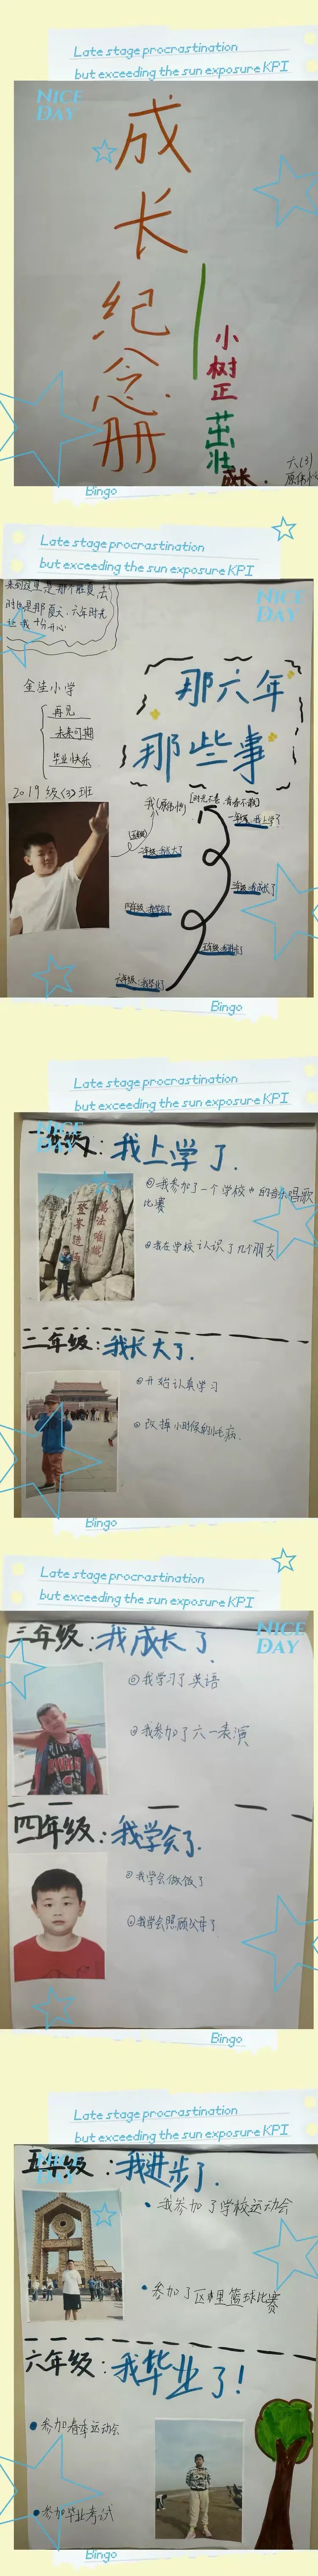 Late stage procrastination
but exceeding the sun exposure KPI
NICE
DAY
成长纪念册
小树正茁壮成长.
六(3)
Bingo
Late stage procrastination
but exceeding the sun exposure KPI
NICE
DAY
金洼小学
再见
未来可期
毕业快乐
2019级(3)班
那六年
那些事
一年级:我上学了
二年级:我长大了
三年级:我成长了
四年级:我学会了
五年级:我进步了
六年级:我毕业了
Bingo
Late stage procrastination
but exceeding the sun exposure KPI
NICE
DAY
一年级:我上学了.
我参加了一个学校的音乐唱歌
比赛
我在学校认识了几个朋友
二年级:我长大了.
开始认真学习
改掉小时候的小毛病.
Bingo
Late stage procrastination
but exceeding the sun exposure KPI
NICE
DAY
三年级:我成长了.
①我学习了英语
②我参加了六一表演
四年级:我学会了.
①我学会做饭了
②我学会照顾父母了
Bingo
Late stage procrastination
but exceeding the sun exposure KPI
五年级:我进步了.
•我参加了学校运动会
•参加了区里篮球比赛
六年级:我毕业了!
•参加春季运动会
•参加毕业考试
Bingo